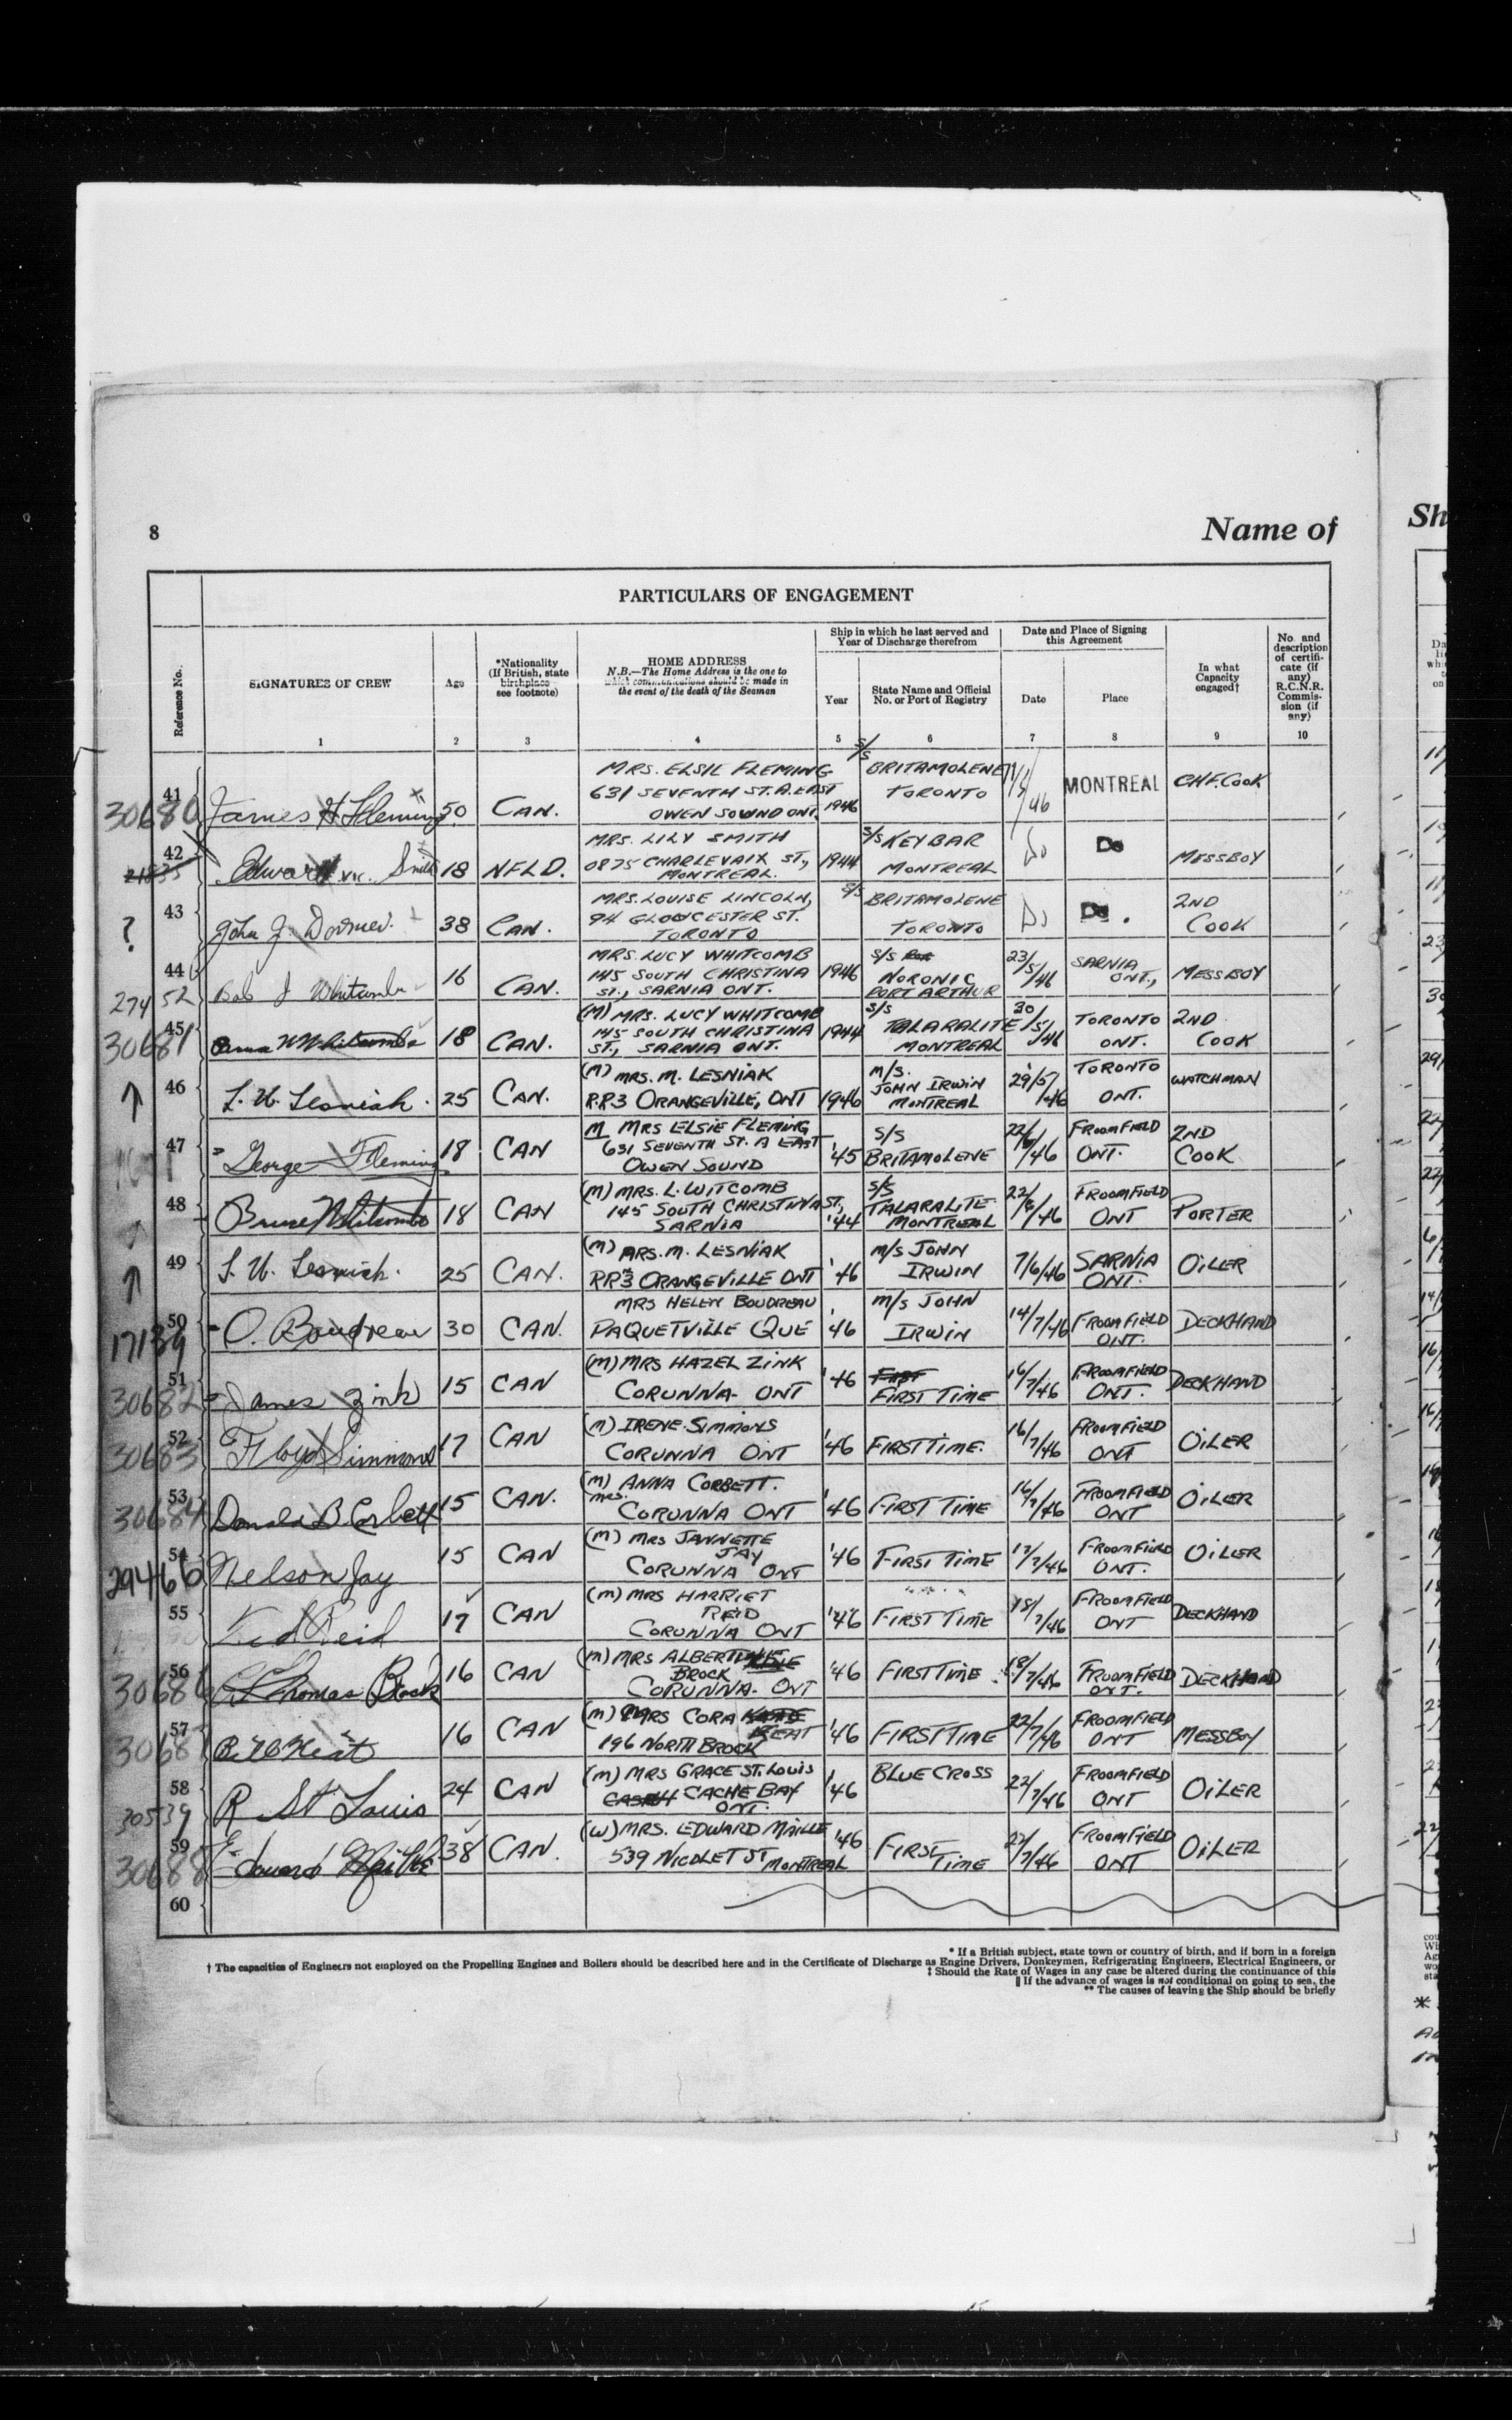 8
Name of
Sh
PARTICULARS OF ENGAGEMENT
Reference No.
SIGNATURES OF CREW
Age
*Nationality
(If British, state
birthplace
see footnote)
HOME ADDRESS
N.B.—The Home Address is the one to
which communications should be made in
the event of the death of the Seaman
Ship in which he last served and
Year of Discharge therefrom
Year
State Name and Official
No. or Port of Registry
Date and Place of Signing
this Agreement
Date
Place
In what
Capacity
engaged†
No and
description
of certifi-
cate (if
any)
R.C.N.R.
Commis-
sion (if
any)
1 2 3 4 5 6 7 8 9 10
30680 41 James H Fleming 50 CAN.
MRS. ELSIE FLEMING
631 SEVENTH ST. A. EAST
OWEN SOUND ONT.
1946 S/S BRITAMOLENE
TORONTO
MONTREAL CHF. COOK
42 Edward Smith 18 NFLD.
MRS. LILY SMITH
0875 CHARLEVAIX ST.,
MONTREAL.
1944 S/S KEYBAR
MONTREAL
Do Do MESSBOY
? 43 John J. 38 CAN.
MRS. LOUISE LINCOLN,
94 GLOUCESTER ST.
TORONTO
S/S BRITAMOLENE
TORONTO
Do Do. 2ND
COOK
27452 44 Bob J Whitcombe 16 CAN.
MRS. LUCY WHITCOMB
145 SOUTH CHRISTINA
ST., SARNIA ONT.
1946 S/S
NORONIC
PORT ARTHUR
23/5/46 SARNIA
ONT., MESSBOY
30681 45 Whitcombe 18 CAN.
(M) MRS. LUCY WHITCOMB
145 SOUTH CHRISTINA
ST., SARNIA ONT.
1944 S/S
TALARALITE
MONTREAL
30/5/46 TORONTO
ONT. 2ND
COOK
↑ 46 Lesniak. 25 CAN.
(M) MRS. M. LESNIAK
R.R3 ORANGEVILLE, ONT
1946 M/S.
JOHN IRWIN
MONTREAL
29/5/46 TORONTO
ONT. WATCHMAN
47 George Fleming 18 CAN
M MRS ELSIE FLEMING
631 SEVENTH ST. A EAST
OWEN SOUND
'45 S/S
BRITAMOLENE
22/6/46 FROOMFIELD
ONT. 2ND
COOK
↑ 48 Bruce Whitcombe 18 CAN
(M) MRS. L. WITCOMB
145 SOUTH CHRISTINA ST,
SARNIA
'44 S/S
TALARALITE
MONTREAL
22/6/46 FROOMFIELD
ONT PORTER
↑ 49 Lesniak. 25 CAN.
(M) MRS. M. LESNIAK
RR3 ORANGEVILLE ONT
'46 M/S JOHN
IRWIN
7/6/46 SARNIA
ONT. OILER
17139 50 O. Boudreau 30 CAN.
MRS HELEN BOUDREAU
PAQUETVILLE QUE
46 M/S JOHN
IRWIN
14/7/46 FROOMFIELD
ONT. DECKHAND
30682 51 James Zink 15 CAN
(M) MRS HAZEL ZINK
CORUNNA- ONT
'46 FIRST
FIRST TIME
16/7/46 FROOMFIELD
ONT. DECKHAND
30683 52 Floyd Simmons 17 CAN
(M) IRENE SIMMONS
CORUNNA ONT
'46 FIRST TIME.
16/7/46 FROOMFIELD
ONT OILER
30684 53 Donald B Corbett 15 CAN.
(M) ANNA CORBETT.
MRS.
CORUNNA ONT
'46 FIRST TIME
16/7/46 FROOMFIELD
ONT OILER
29466 54 Nelson Jay 15 CAN
(M) MRS JANNETTE
JAY
CORUNNA ONT
'46 FIRST TIME
17/7/46 FROOMFIELD
ONT. OILER
55 Reid 17 CAN
(M) MRS HARRIET
REID
CORUNNA ONT
'46 FIRST TIME
18/7/46 FROOMFIELD
ONT DECKHAND
30686 56 Thomas Brock 16 CAN
(M) MRS
BROCK
CORUNNA- ONT
'46 FIRST TIME
18/7/46 FROOMFIELD
ONT. DECKHAND
3068 57 16 CAN
(M) MRS CORA
196 NORTH BROCK
'46 FIRST TIME
22/7/46 FROOMFIELD
ONT MESSBOY
30539 58 R St Louis 24 CAN
(M) MRS GRACE ST. LOUIS
CACHE BAY
ONT.
'46 BLUE CROSS
22/7/46 FROOMFIELD
ONT OILER
30688 59 Edward Maille 38 CAN.
(W) MRS. EDWARD MAILLE
539 NICOLET ST MONTREAL
'46 FIRST
TIME
22/7/46 FROOMFIELD
ONT OILER
60
* If a British subject, state town or country of birth, and if born in a foreign
† The capacities of Engineers not employed on the Propelling Engines and Boilers should be described here and in the Certificate of Discharge as Engine Drivers, Donkeymen, Refrigerating Engineers, Electrical Engineers, or
‡ Should the Rate of Wages in any case be altered during the continuance of this
‖ If the advance of wages is not conditional on going to sea, the
** The causes of leaving the Ship should be briefly